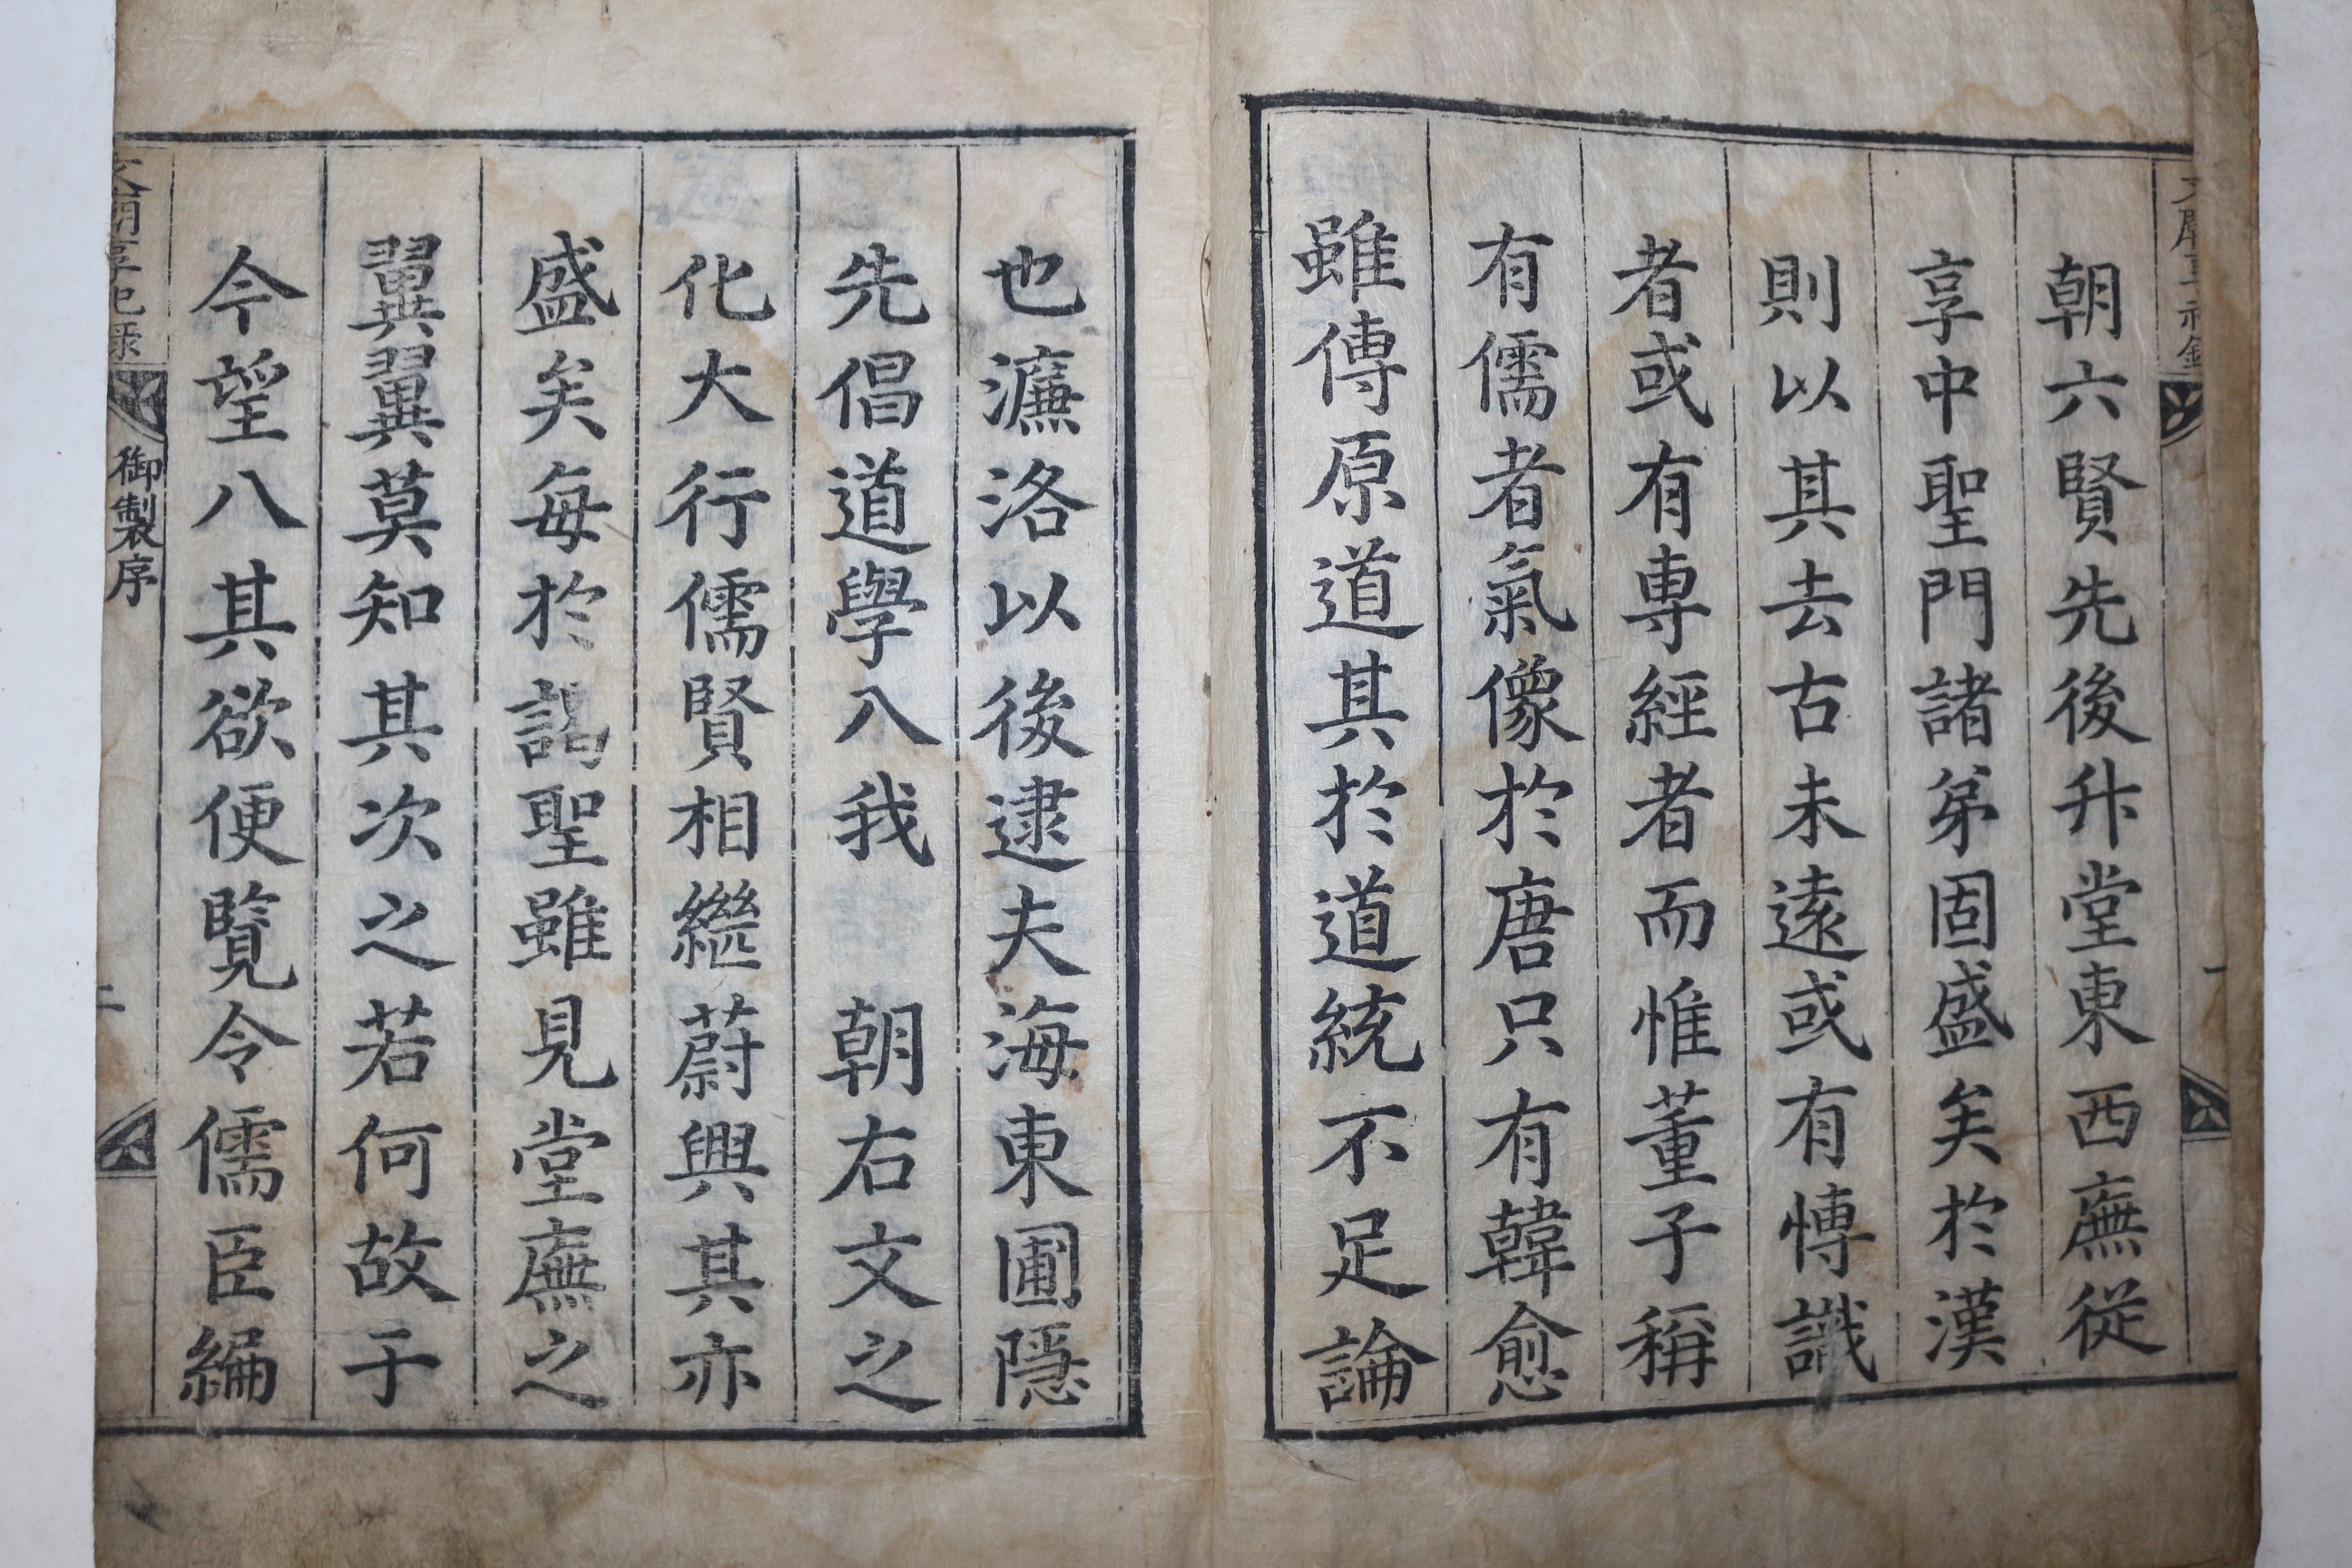 朝六賢先後升堂東西廡從
享中聖門諸弟固盛矣於漢
則以其去古未遠或有愽識
者或有專經者而惟董子稱
有儒者氣像於唐只有韓愈
雖傳原道其於道統不足論
也濂洛以後逮夫海東圃隱
先倡道學入我 朝右文之
化大行儒賢相繼蔚興其亦
盛矣每於謁聖雖見堂廡之
翼翼莫知其次之若何故于
今望八其欲便覽令儒臣編
御製序
二